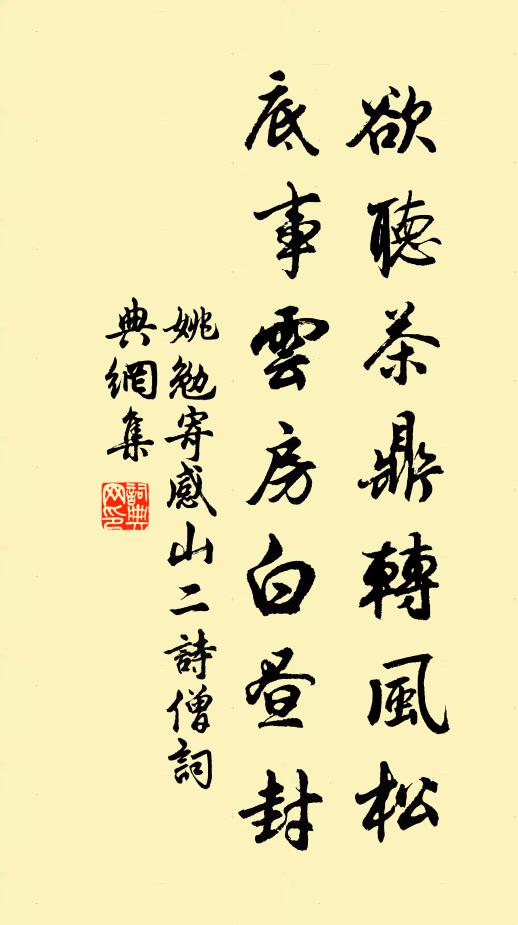 欲聽茶鼎轉風松
底事雲房白晝封
姚勉寄感山二詩僧詞
典網集
詞典
网印